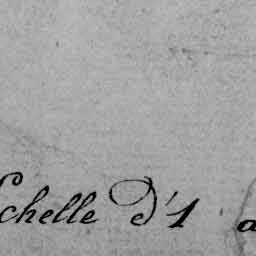 Echelle d'1 a